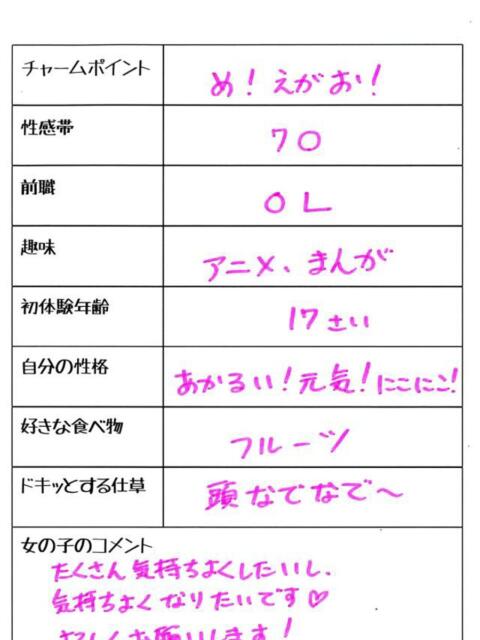 チャームポイント
め！えがお！
性感帯
70
前職
OL
趣味
アニメ、まんが
初体験年齢
17さい
自分の性格
あかるい！元気！にこにこ！
好きな食べ物
フルーツ
ドキッとする仕草
頭なでなで〜
女の子のコメント
たくさん気持ちよくしたいし、
気持ちよくなりたいです♡
お願いします！